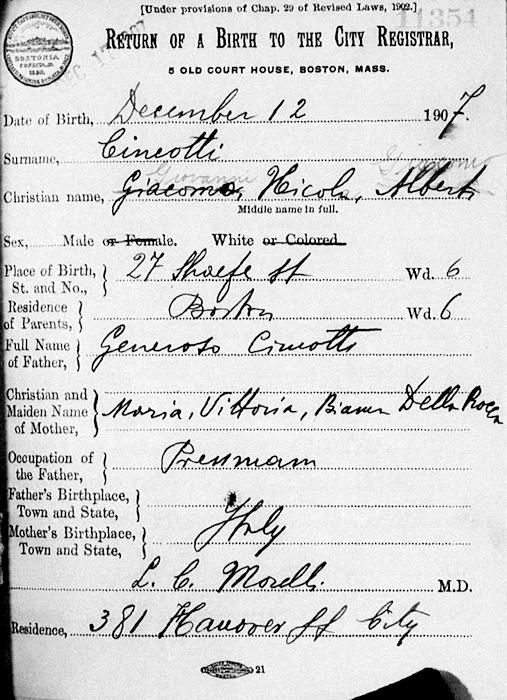 [Under provisions of Chap. 29 of Revised Laws, 1902.]
11354
BOSTONIA
CONDITA A.D.
1630.
RETURN OF A BIRTH TO THE CITY REGISTRAR,
5 OLD COURT HOUSE, BOSTON, MASS.
Date of Birth, December 12 1907.
Surname, Cineotti
Giovanni Giacomo
Christian name, Giacomo, Nicola, Albert
Middle name in full.
Sex, Male or Female. White or Colored.
Place of Birth, St. and No., 27 Sheafe St Wd. 6
Residence of Parents, Boston Wd. 6
Full Name of Father, Generoso Cineotti
Christian and Maiden Name of Mother, Maria, Vittoria, Bianca Della Rocca
Occupation of the Father, Pressman
Father's Birthplace, Town and State,
Mother's Birthplace, Town and State, Italy
L. C. Morelli M.D.
Residence, 381 Hanover St City
21